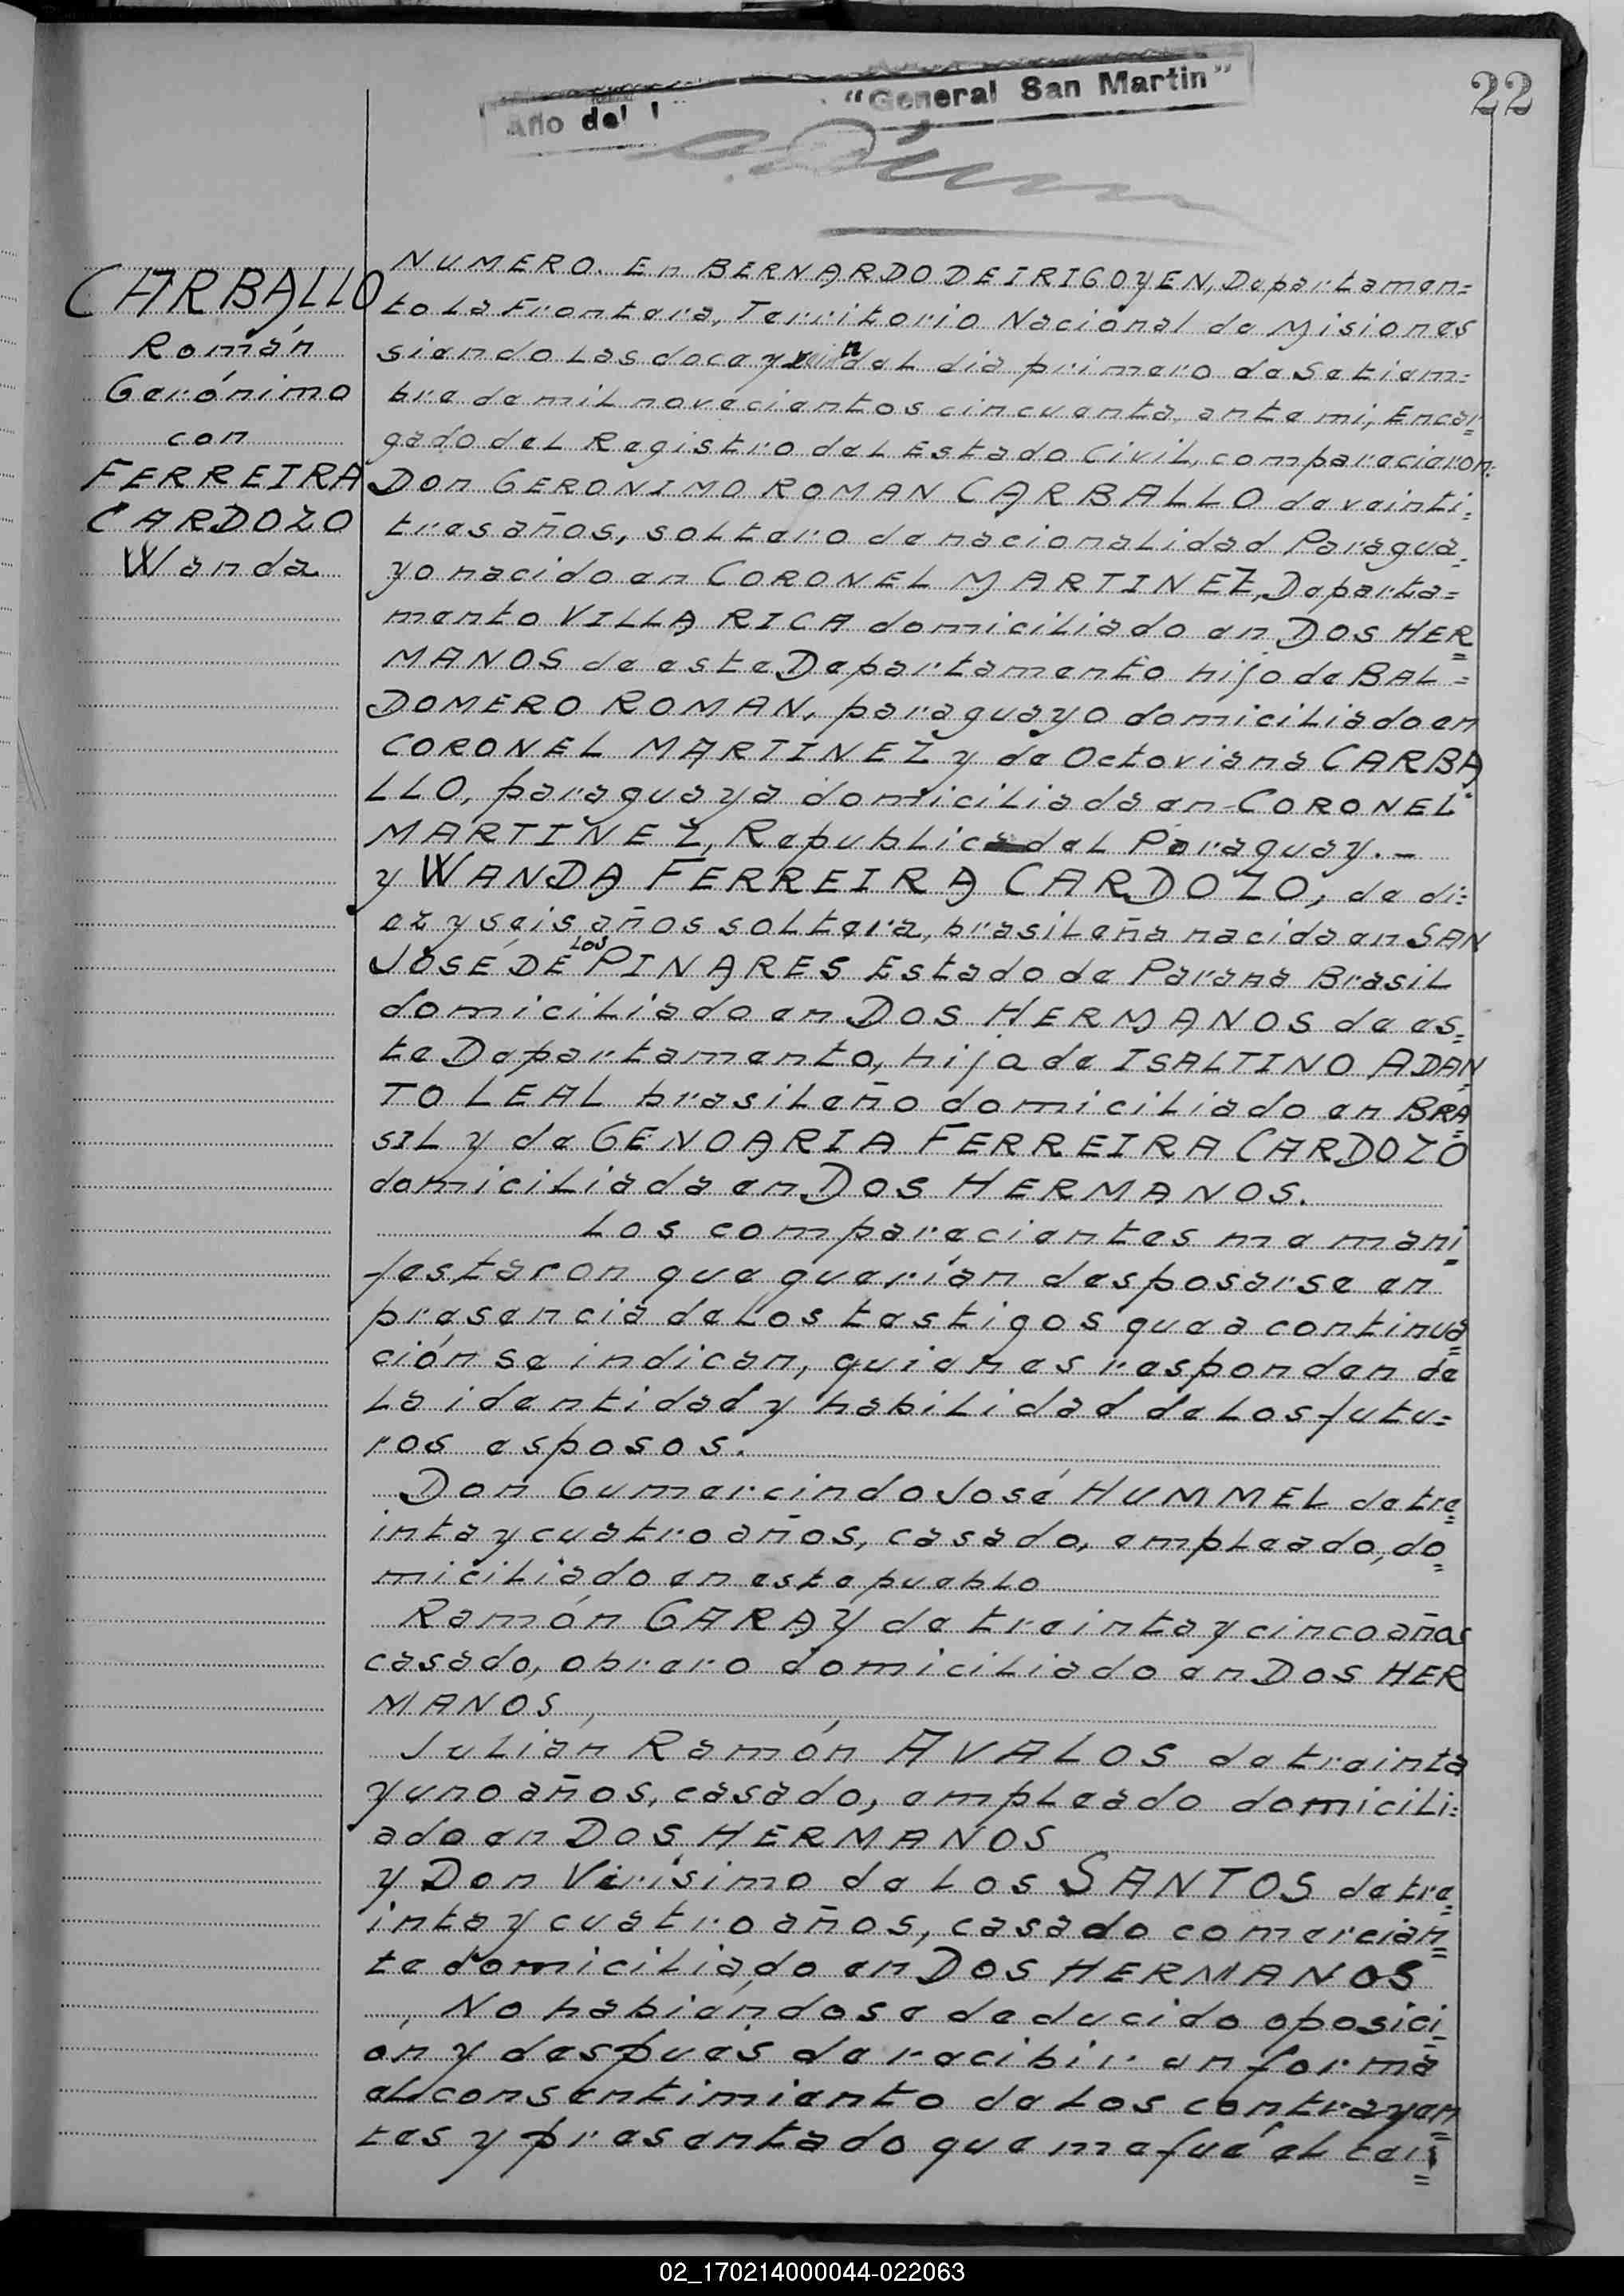 Año del "General San Martin"
22
CARBALLO
Román
Gerónimo
con
FERREIRA
CARDOZO
Wanda
NUMERO. En BERNARDO DE IRIGOYEN, Departamen=
to La Frontera, Territorio Nacional de Misiones
siendo Las doce y del dia primero de Setiem=
bre de mil novecientos cincuenta, ante mi, Encar=
gado del Registro del Estado Civil, comparecieron:
Don GERONIMO ROMAN CARBALLO de veinti=
tres años, soltero de nacionalidad Paragua=
yo nacido en CORONEL MARTINEZ, Departa=
mento VILLA RICA domiciliado en DOS HER=
MANOS de este Departamento hijo de BAL=
DOMERO ROMAN, paraguayo domiciliado en
CORONEL MARTINEZ y de Octoviana CARBA
LLO, paraguaya domiciliada en CORONEL
MARTINEZ, Republica del Paraguay. -
y WANDA FERREIRA CARDOZO, de di=
ez y seis años soltera, brasileña nacida en SAN
JOSÉ DE LOS PINARES Estado de Parana Brasil
domiciliado en DOS HERMANOS de es=
te Departamento, hija de ISALTINO ADAN=
TO LEAL brasileño domiciliado en BRA=
SIL y de GENOARIA FERREIRA CARDOZO
domiciliada en DOS HERMANOS.
Los comparecientes me mani=
festaron que querían desposarse en
presencia de Los testigos que a continua=
ción se indican, quienes responden de
La identidad y habilidad de Los futu=
ros esposos.
Don Gumercindo José HUMMEL de tre=
inta y cuatro años, casado, empleado, do=
miciliado en este pueblo
Ramón GARAY de treinta y cinco años
casado, obrero domiciliado en DOS HER
MANOS
Julián Ramón AVALOS de treinta
y uno años, casado, empleado domicili=
ado en DOS HERMANOS
y Don Virísimo de Los SANTOS de tre=
inta y cuatro años, casado comercian=
te domiciliado en DOS HERMANOS
No habiéndose deducido oposici=
on y después de recibir en forma
el consentimiento de Los contrayen=
tes y presentado que me fué el cer=
02_170214000044-022063